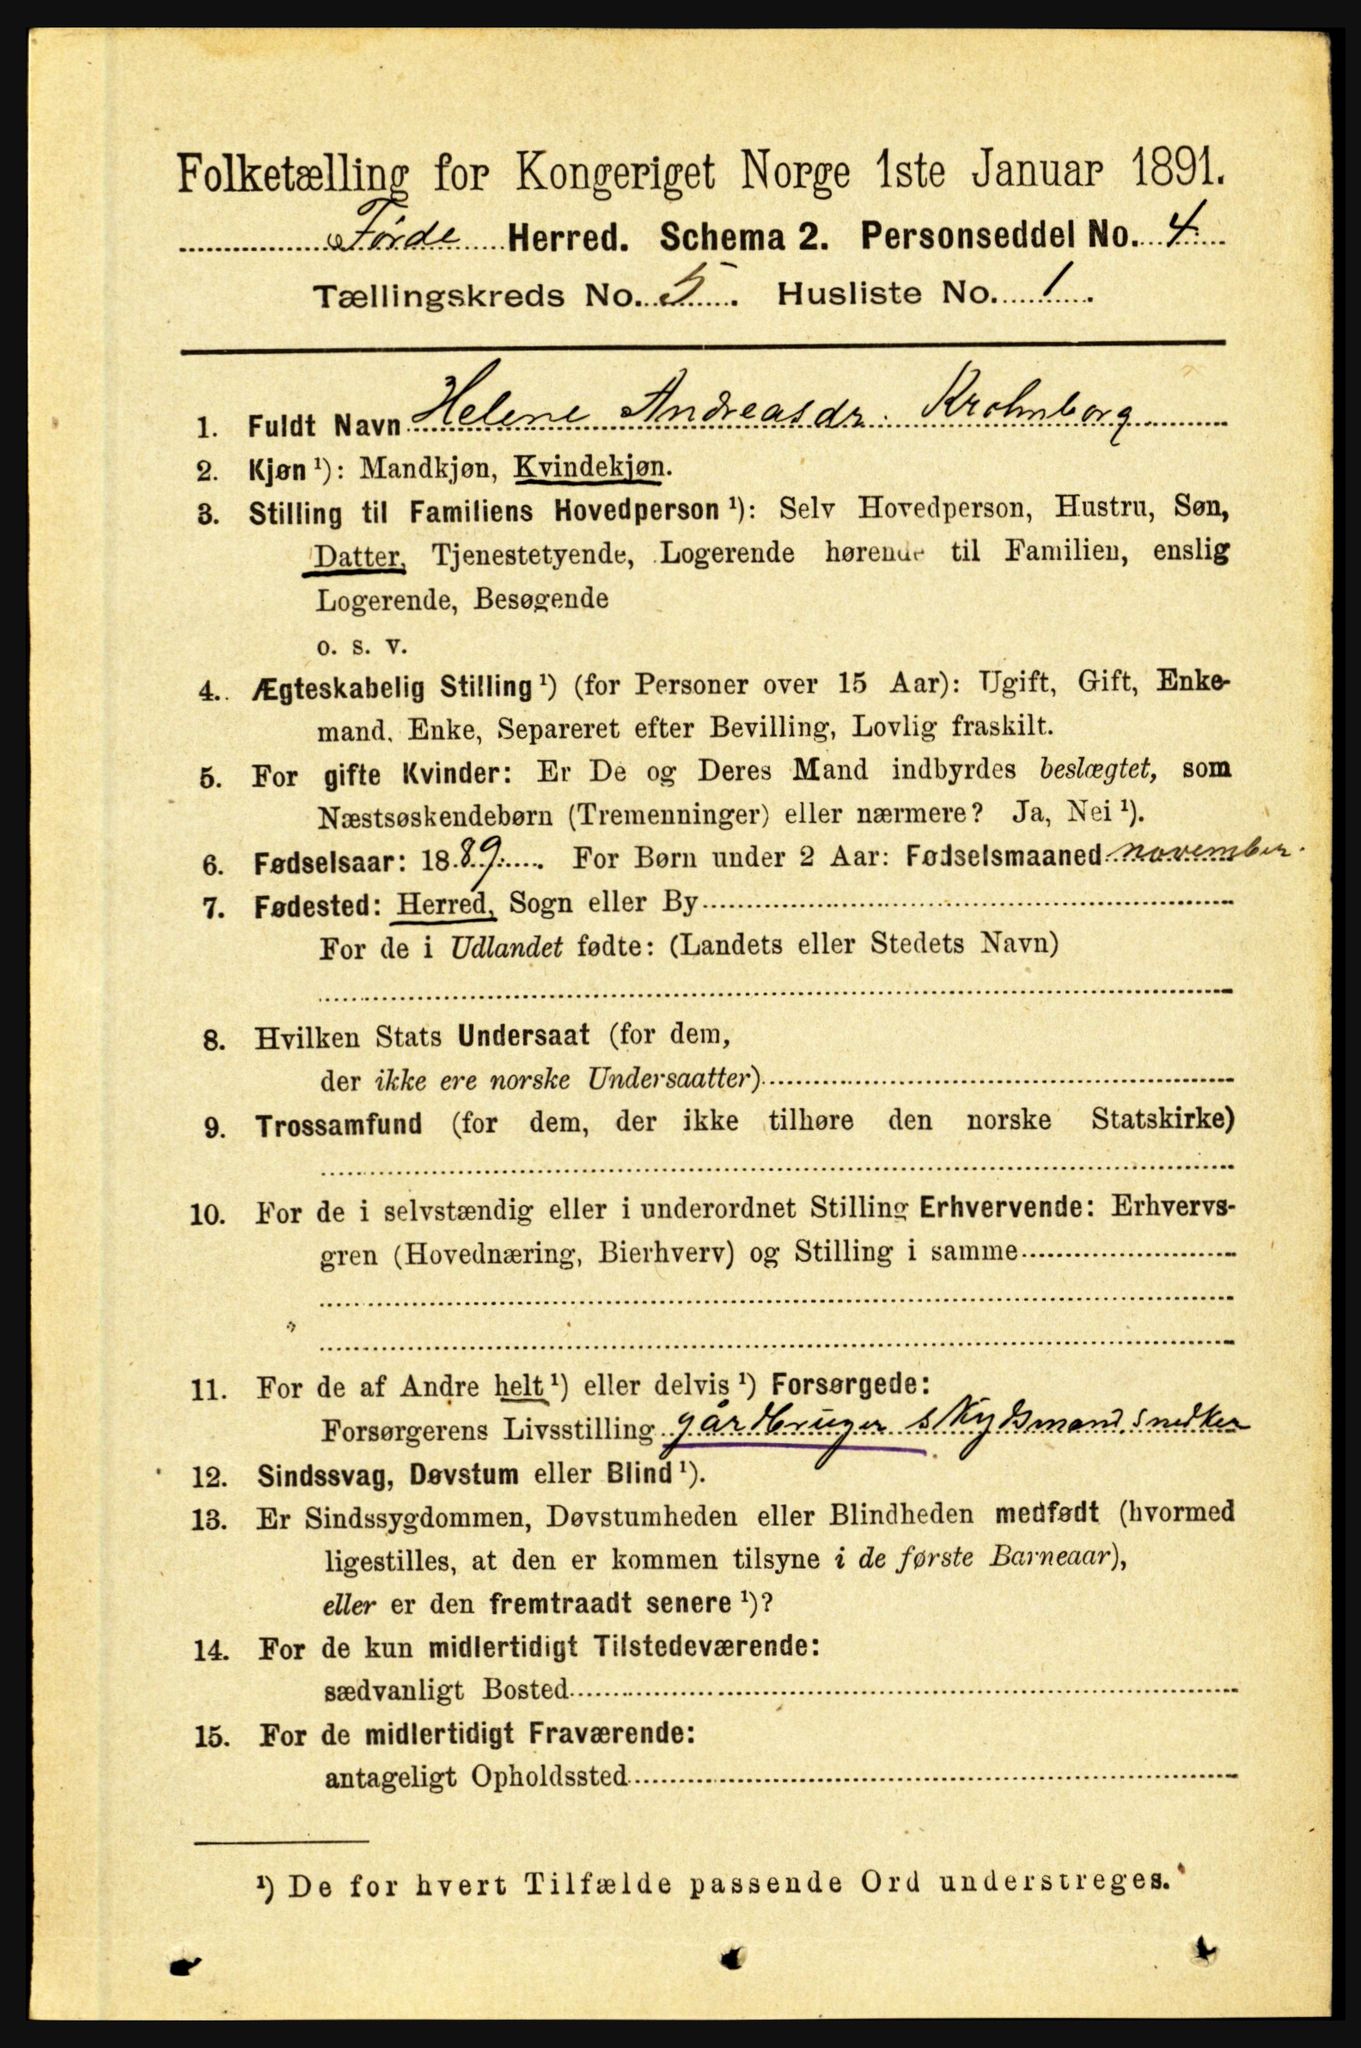 Folketælling for Kongeriget Norge 1ste Januar 1891.
Førde Herred. Schema 2. Personseddel No. 4
Tællingskreds No. 5. Husliste No. 1.
1. Fuldt Navn Helene Andreasdr. Krohnborg
2. Kjøn ¹): Mandkjøn, Kvindekjøn.
3. Stilling til Familiens Hovedperson ¹): Selv Hovedperson, Hustru, Søn,
Datter, Tjenestetyende, Logerende hørende til Familien, enslig
Logerende, Besøgende
o. s. v.
4. Ægteskabelig Stilling ¹) (for Personer over 15 Aar): Ugift, Gift, Enke-
mand, Enke, Separeret efter Bevilling, Lovlig fraskilt.
5. For gifte Kvinder: Er De og Deres Mand indbyrdes beslægtet, som
Næstsøskendebørn (Tremenninger) eller nærmere? Ja, Nei ¹).
6. Fødselsaar: 1889. For Børn under 2 Aar: Fødselsmaaned november.
7. Fødested: Herred, Sogn eller By
For de i Udlandet fødte: (Landets eller Stedets Navn)
8. Hvilken Stats Undersaat (for dem,
der ikke ere norske Undersaatter)
9. Trossamfund (for dem, der ikke tilhøre den norske Statskirke)
10. For de i selvstændig eller i underordnet Stilling Erhvervende: Erhvervs-
gren (Hovednæring, Bierhverv) og Stilling i samme
11. For de af Andre helt ¹) eller delvis ¹) Forsørgede:
Forsørgerens Livsstilling gårdbruger skydsmand, snedker
12. Sindssvag, Døvstum eller Blind ¹).
13. Er Sindssygdommen, Døvstumheden eller Blindheden medfødt (hvormed
ligestilles, at den er kommen tilsyne i de første Barneaar),
eller er den fremtraadt senere ¹)?
14. For de kun midlertidigt Tilstedeværende:
sædvanligt Bosted
15. For de midlertidigt Fraværende:
antageligt Opholdssted
¹) De for hvert Tilfælde passende Ord understreges.